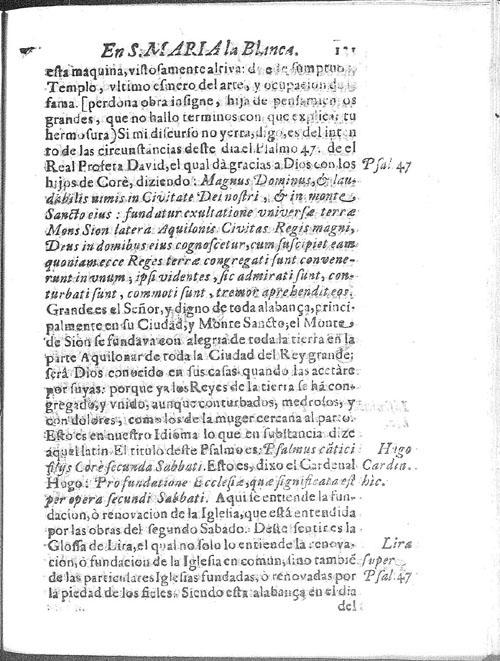 En S. MARIA la Blanca.
esta maquina, vistosamente altiva: de este sumptuoso
Templo, vltimo esmero del arte, y ocupacion de la
fama. [perdona obra insigne, hija de pensamientos
grandes, que no hallo terminos con que explicar tu
hermosura) Si mi discurso no yerra, digo, es del inten
to de las circunstancias deste dia el Psalmo 47. de el
Real Profeta David, el qual dà gracias a Dios con los Psal. 47
hijos de Corè, diziendo: Magnus Dominus, & lau-
dabilis nimis in Civitate Dei nostri, & in monte
Sancto eius: fundatur exultatione vniversæ terræ
Mons Sion latera Aquilonis Civitas Regis magni,
Deus in domibus eius cognoscetur, cum suscipiet eam
quoniam ecce Reges terræ congregati sunt convene-
runt in vnum; ipsi videntes, sic admirati sunt, con-
turbati sunt, commoti sunt, tremor aprehendit eos.
Grande es el Señor, y digno de toda alabança, princi-
palmente en su Ciudad, y Monte Sancto; el Monte
de Sion se fundava con alegria de toda la tierra en la
parte Aquilonar de toda la Ciudad del Rey grande;
serà Dios conocido en sus casas quando las acetàre
por suyas: porque ya los Reyes de la tierra se hà con-
gregado, y vnido, aunque conturbados, medrosos, y
con dolores, como los de la muger cercana al parto.
Esto es en nuestro Idioma lo que en substancia dize
aquel latin. El titulo deste Psalmo es: Psalmus cātici Hugo
filijs Corè secunda Sabbati. Esto es, dixo el Cardenal Cardin.
Hugo: Pro fundatione Ecclesiæ, quæ significata est hic.
per opera secundi Sabbati. Aqui se entiende la fun-
dacion, ò renovacion de la Iglesia, que està entendida
por las obras del segundo Sabado. Deste sentir es la
Glossa de Lira, el qual no solo lo entiende la renova- Liræ
ciòn, ò fundacion de la Iglesia en comùn, sino tambiē super
de las particulares Iglesias fundadas, ò renovadas por Psal. 47
la piedad de los fieles. Siendo esta alabança en el dia
del